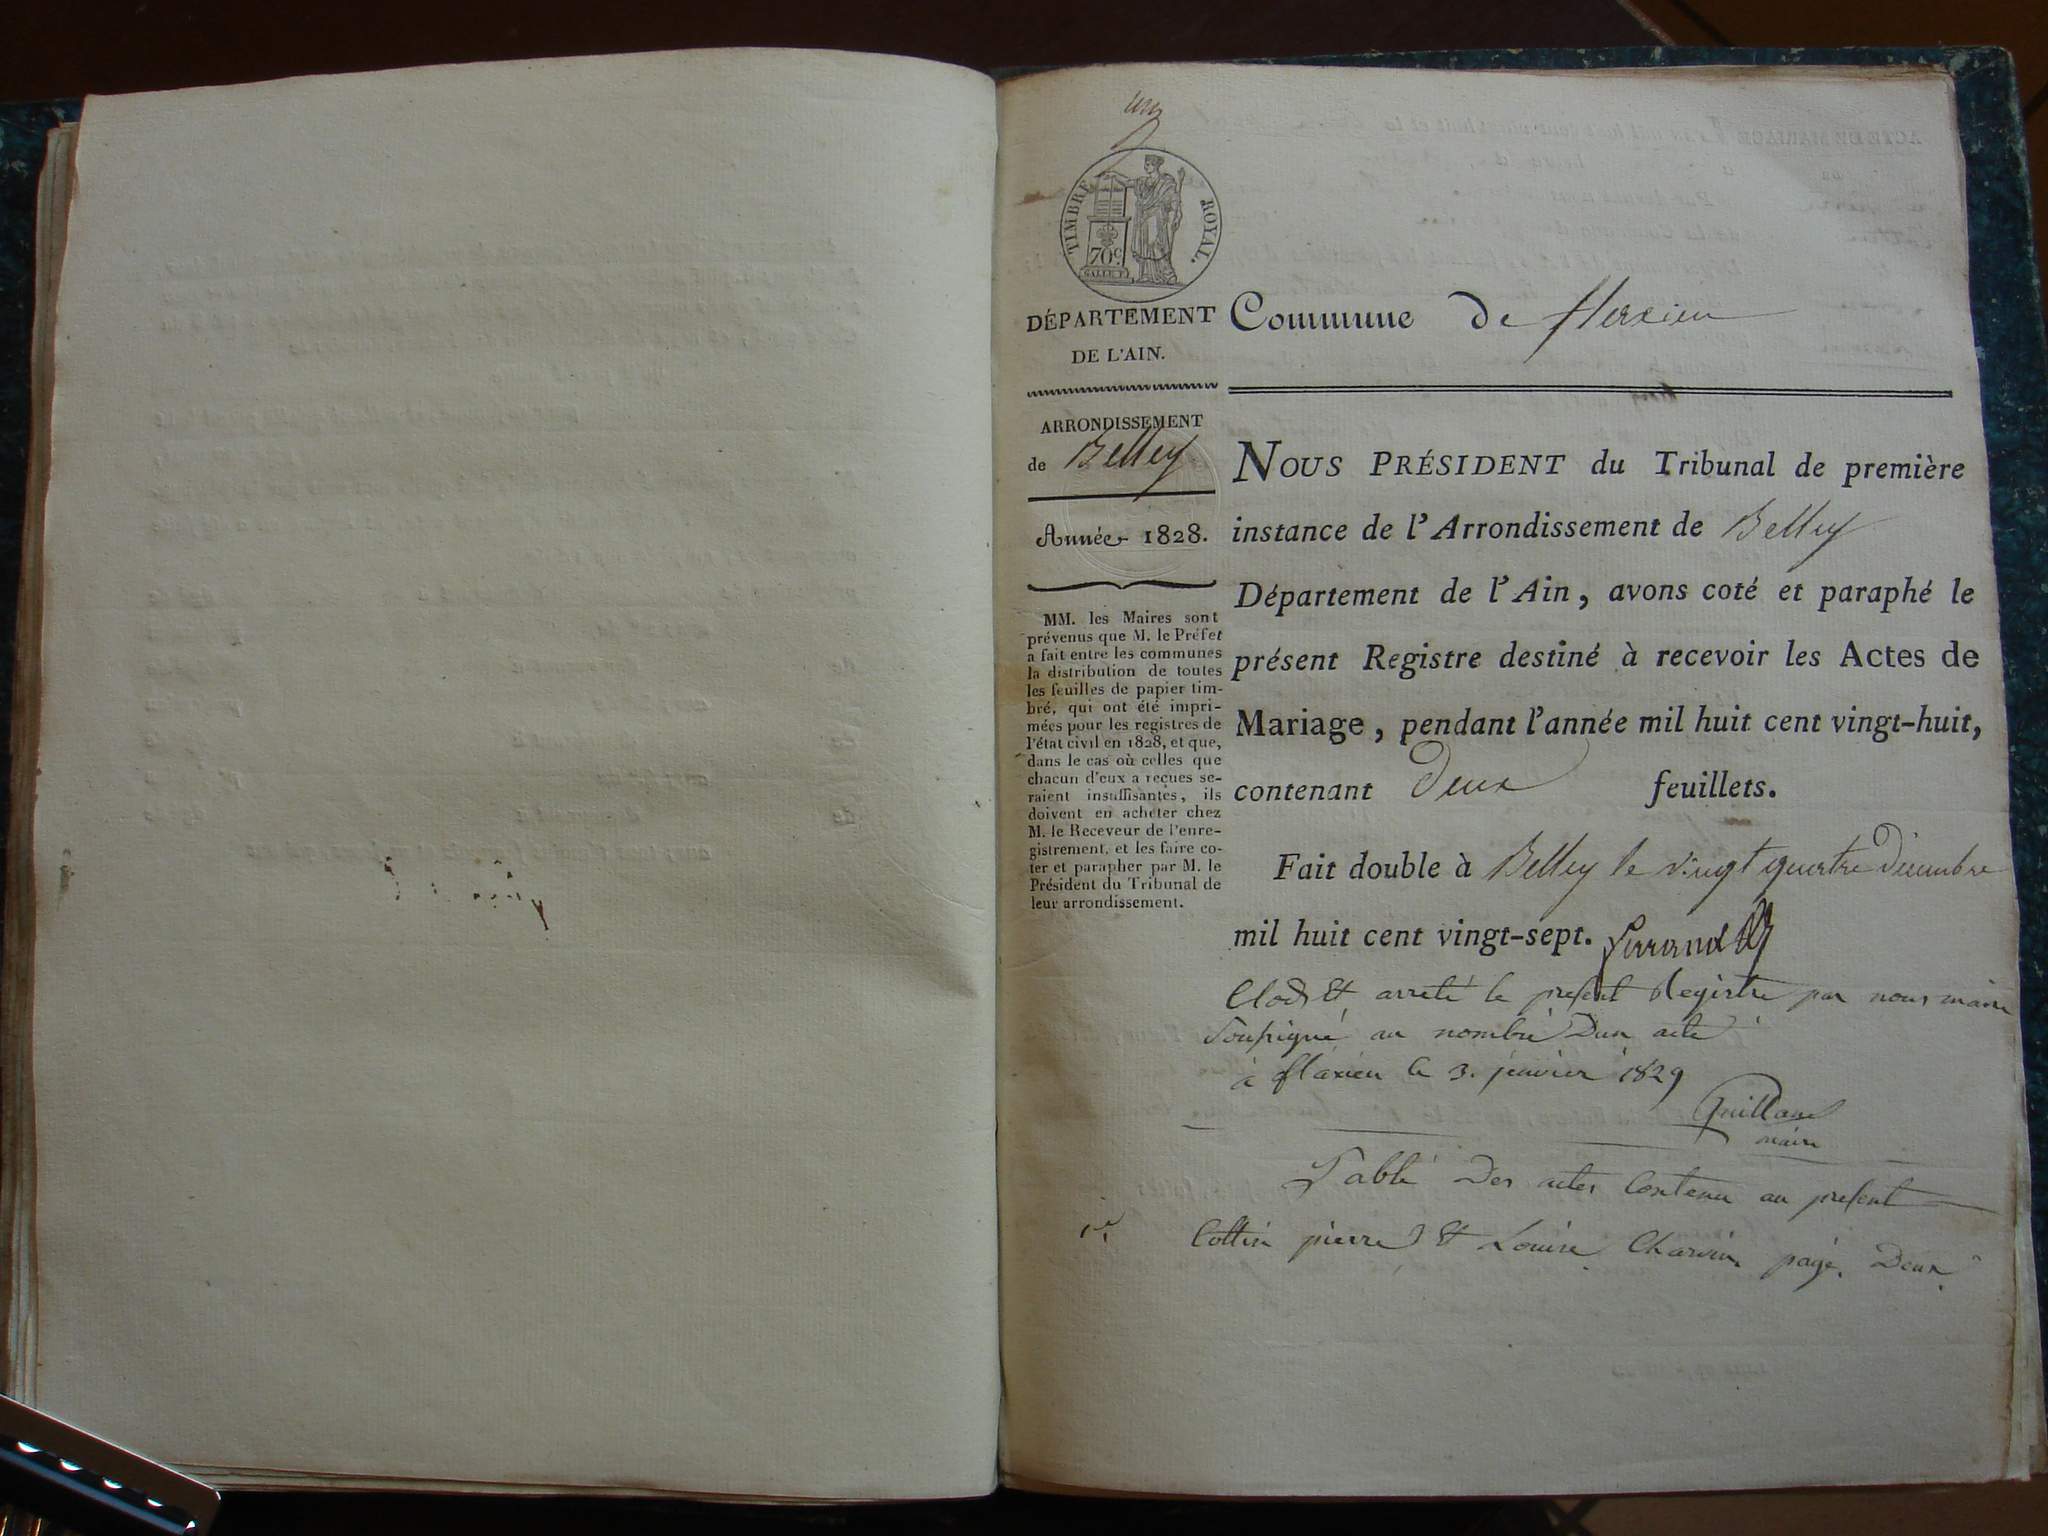 un
TIMBRE ROYAL.
70 c
DÉPARTEMENT
DE L'AIN.
ARRONDISSEMENT
de Belley
Année 1828.
MM. les Maires sont
prévenus que M. le Préfet
a fait entre les communes
la distribution de toutes
les feuilles de papier tim-
bré, qui ont été impri-
mées pour les registres de
l'état civil en 1828, et que,
dans le cas où celles que
chacun d'eux a reçues se-
raient insuffisantes, ils
doivent en acheter chez
M. le Receveur de l'enre-
gistrement, et les faire co-
ter et parapher par M. le
Président du Tribunal de
leur arrondissement.
Commune de flaxieu
NOUS PRÉSIDENT du Tribunal de première
instance de l'Arrondissement de Belley
Département de l'Ain, avons coté et paraphé le
présent Registre destiné à recevoir les Actes de
Mariage, pendant l'année mil huit cent vingt-huit,
contenant Deux feuillets.
Fait double à Belley le vingt quatre Décembre
mil huit cent vingt-sept.
Clos et arreté le present Registre par nous maire
Soussigné au nombre D'un acte
à flaxieu le 3. janvier 1829
maire
Table Des actes Contenu au present
1er. Cottin pierre et Louise Charvin page Deux.